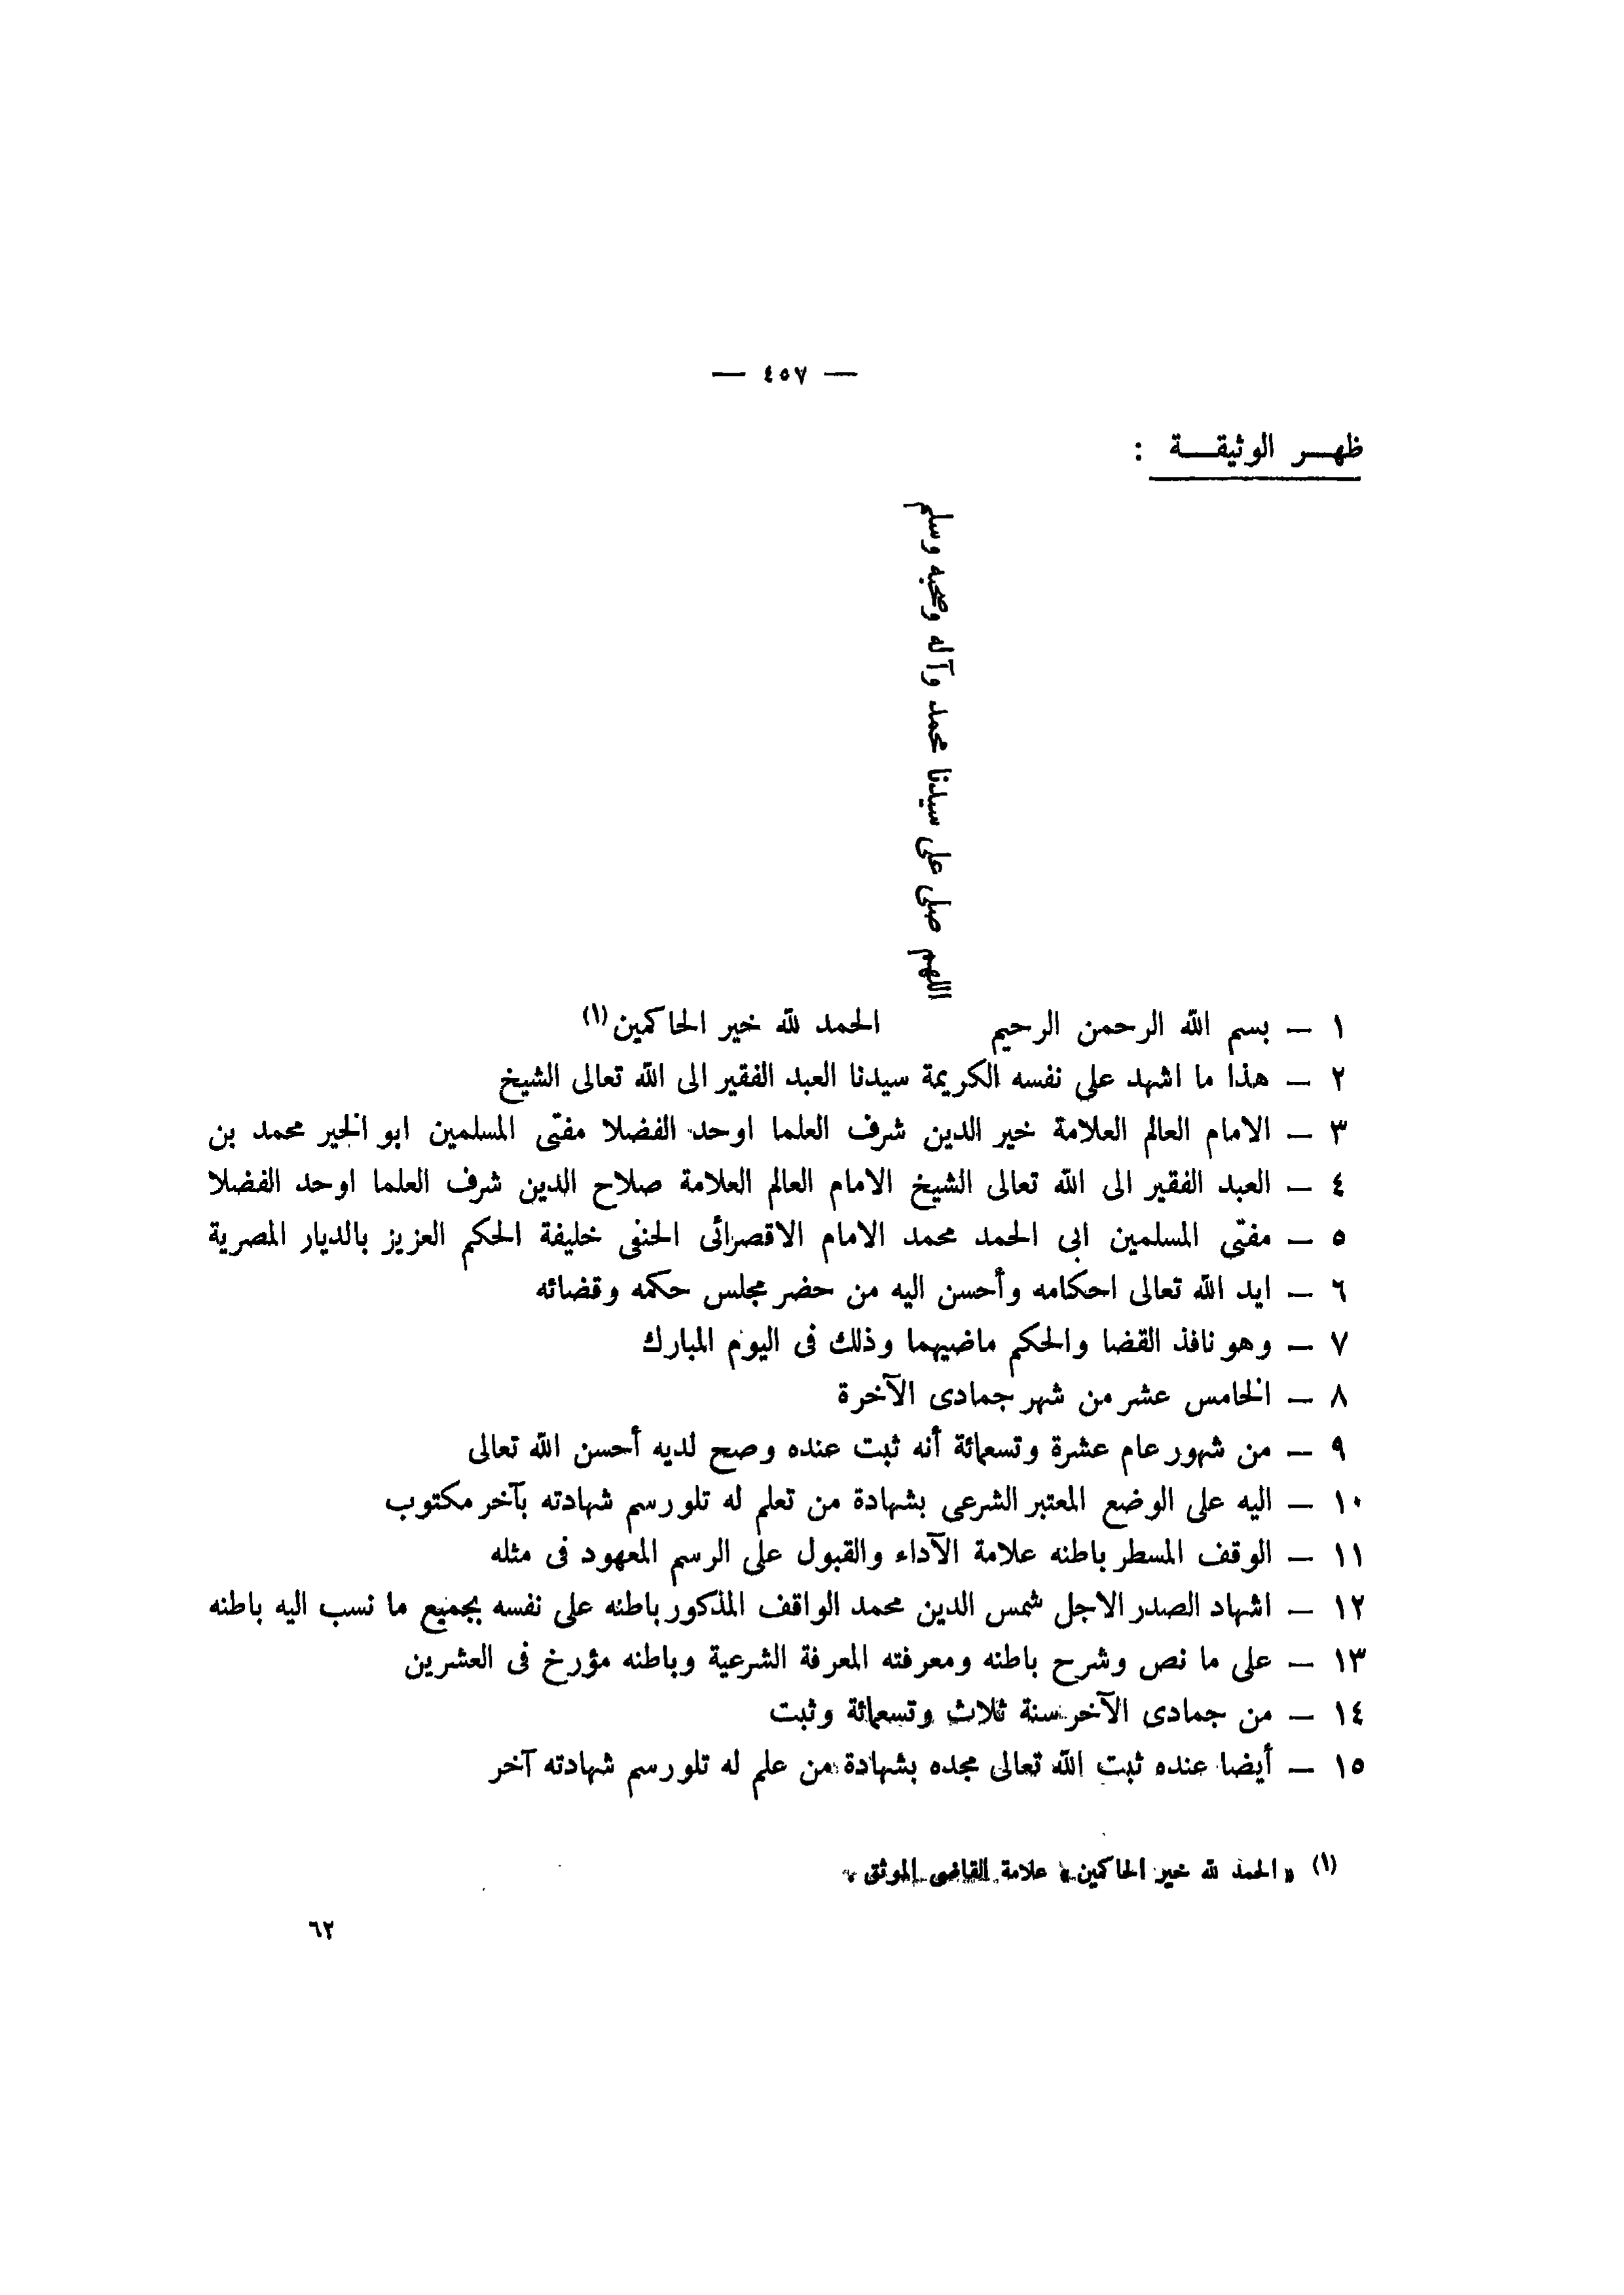 — ٤٥٧ —
ظهر الوثيقة :
اللهم صلى على سيدنا محمد وآله وصحبه وسلم
١ — بسم الله الرحمن الرحيم الحمد لله خير الحاكمين(١)
٢ — هذا ما اشهد على نفسه الكريمة سيدنا العبد الفقير الى الله تعالى الشيخ
٣ — الامام العالم العلامة خير الدين شرف العلما اوحد الفضلا مفتى المسلمين ابو الخير محمد بن
٤ — العبد الفقير الى الله تعالى الشيخ الامام العالم العلامة صلاح الدين شرف العلما اوحد الفضلا
٥ — مفتى المسلمين ابى الحمد محمد الامام الاقصرائى الحنفى خليفة الحكم العزيز بالديار المصرية
٦ — ايد الله تعالى احكامه وأحسن اليه من حضر مجلس حكمه وقضائه
٧ — وهو نافذ القضا والحكم ماضيهما وذلك فى اليوم المبارك
٨ — الخامس عشر من شهر جمادى الآخرة
٩ — من شهور عام عشرة وتسعمائة أنه ثبت عنده وصح لديه أحسن الله تعالى
١٠ — اليه على الوضع المعتبر الشرعى بشهادة من تعلم له تلو رسم شهادته بآخر مكتوب
١١ — الوقف المسطر باطنه علامة الآداء والقبول على الرسم المعهود فى مثله
١٢ — اشهاد الصدر الاجل شمس الدين محمد الواقف المذكور باطنه على نفسه بجميع ما نسب اليه باطنه
١٣ — على ما نص وشرح باطنه ومعرفته المعرفة الشرعية وباطنه مؤرخ فى العشرين
١٤ — من جمادى الآخر سنة ثلاث وتسعمائة وثبت
١٥ — أيضا عنده ثبت الله تعالى مجده بشهادة من علم له تلو رسم شهادته آخر
(١) « الحمد لله خير الحاكمين » علامة القاضى الموثق .
٦٢